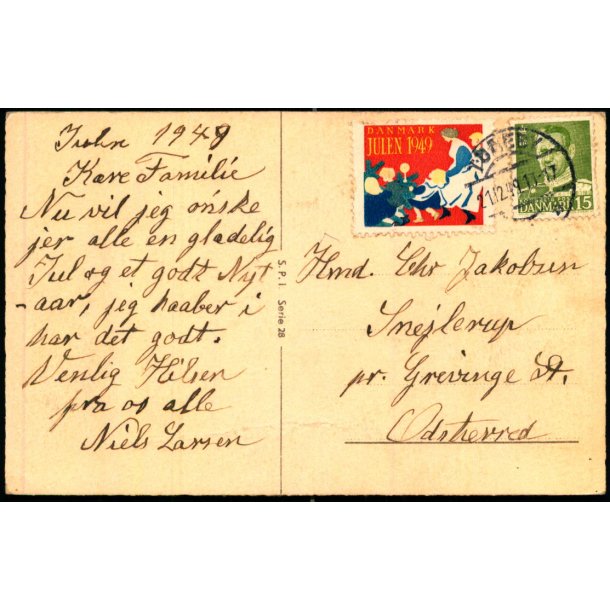 Julen 1949
Kære Familie
Nu vil jeg ønske
jer alle en glædelig
Jul og et godt Nyt
-aar, jeg haaber i
har det godt.
Venlig Hilsen
fra os alle
Niels Larsen
S.P.J. Serie 28
DANMARK
JULEN 1949
21.12.49.11-17
DANMARK 15
Hmd. Chr Jakobsen
Snejlerup
pr. Grevinge St.
Odsherred